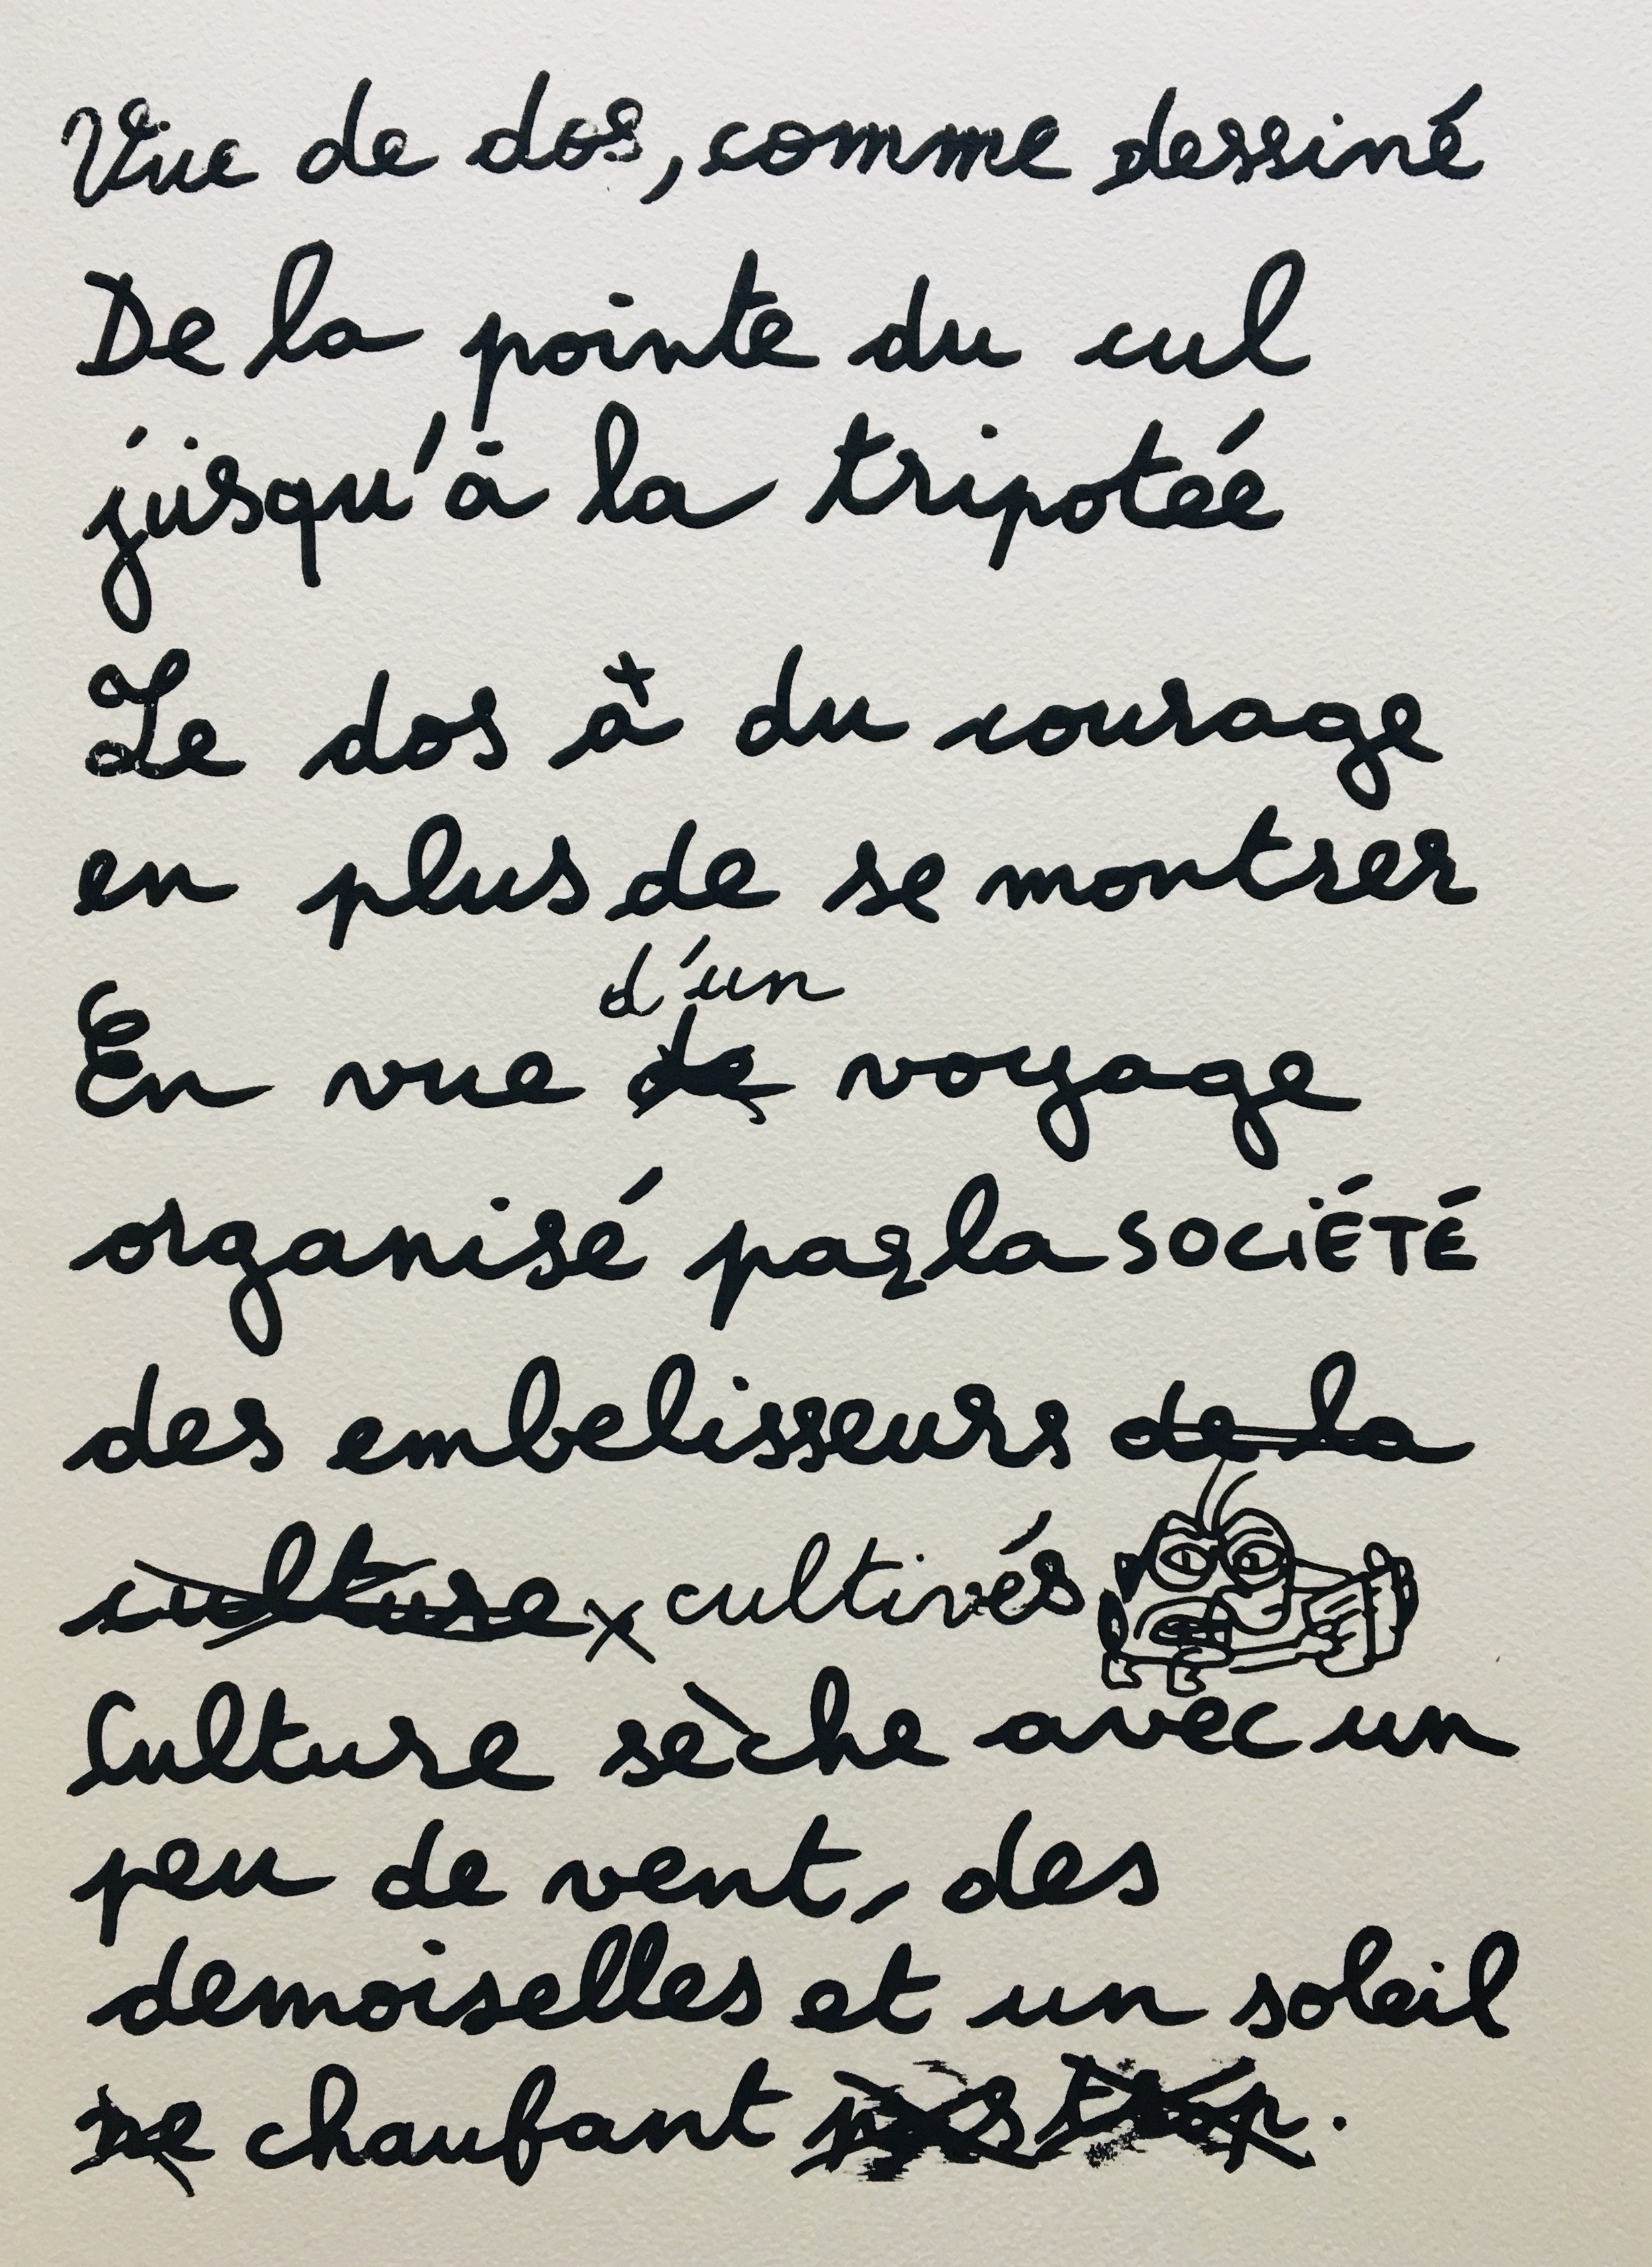 Vue de dos, comme dessiné
De la pointe du cul
jusqu'à la tripotée
Le dos à du courage
en plus de se montrer
d'un
En vue de voyage
organisé par la SOCiÉTÉ
des embelisseurs de la
culture x cultivés
Culture sèche avec un
peu de vent, des
demoiselles et un soleil
ne chaufant pas trop.